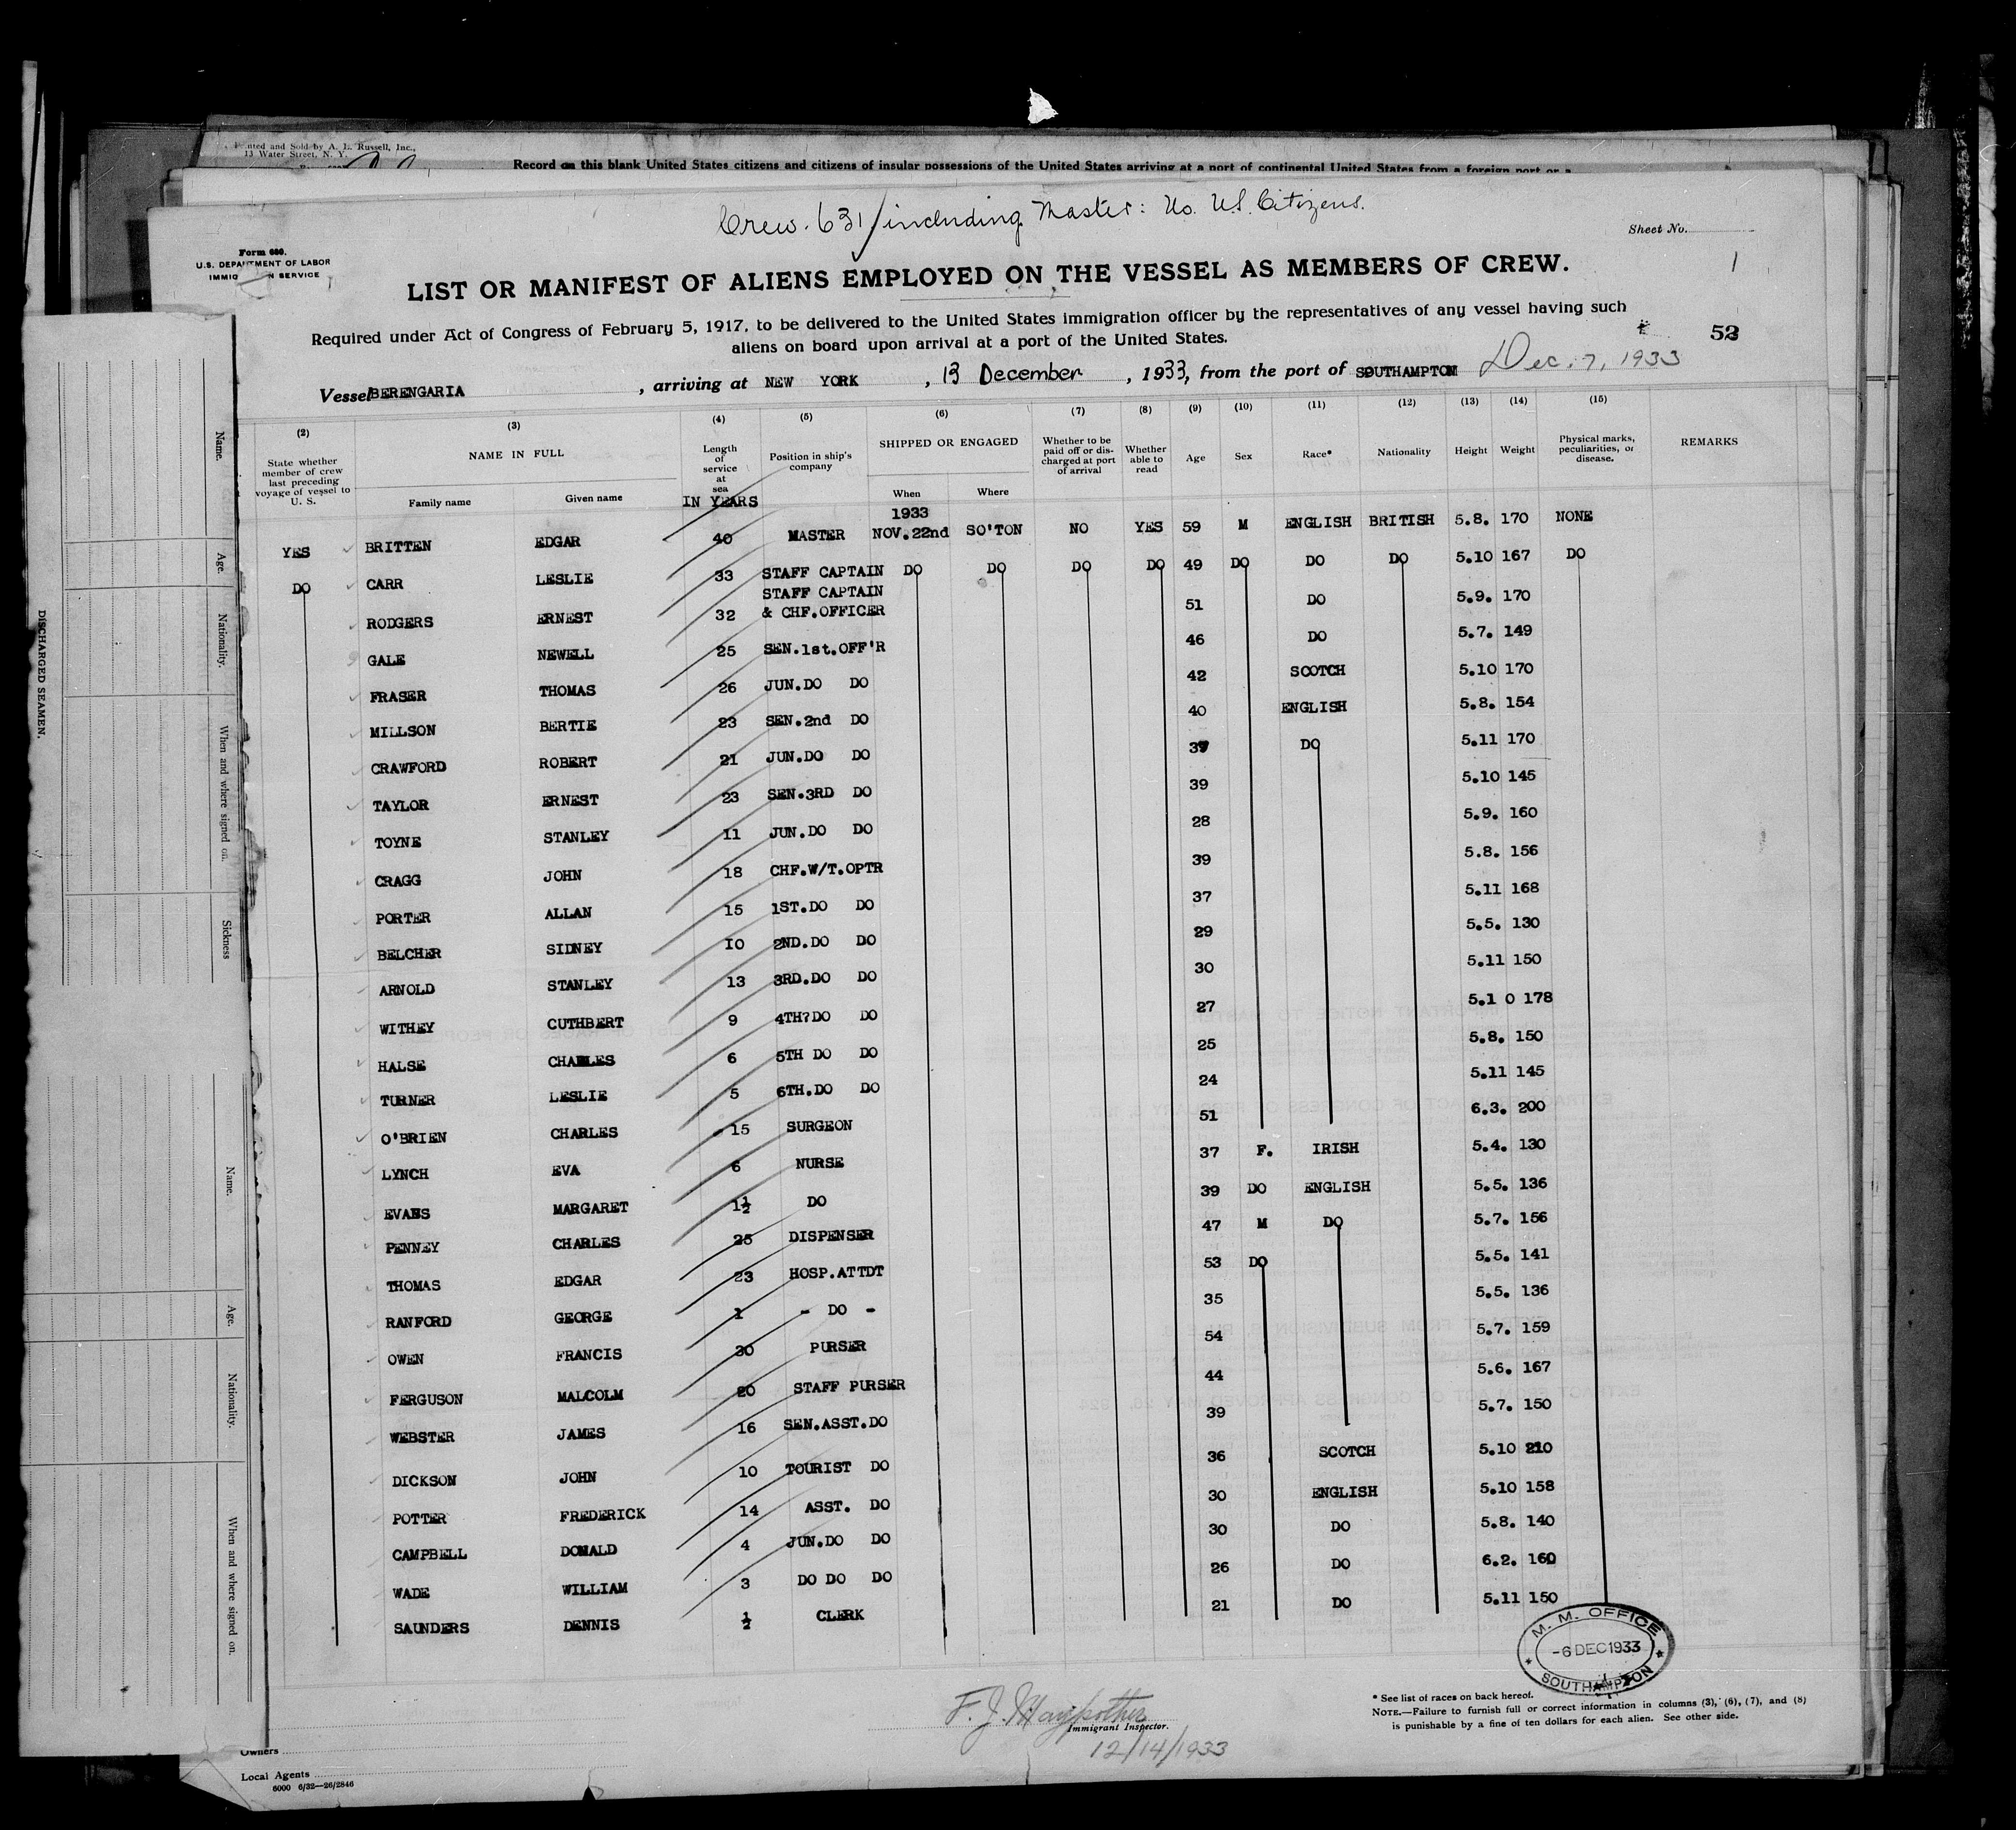 Printed and Sold by A. L. Russell, Inc.,
13 Water Street, N. Y.
Record on this blank United States citizens and citizens of insular possessions of the United States arriving at a port of continental United States from a foreign port or a
Crew. 631 / including Master: No. U.S. Citizens.
Sheet No.
1
Form 680.
U.S. DEPARTMENT OF LABOR
IMMIG N SERVICE
LIST OR MANIFEST OF ALIENS EMPLOYED ON THE VESSEL AS MEMBERS OF CREW.
Required under Act of Congress of February 5, 1917, to be delivered to the United States immigration officer by the representatives of any vessel having such
aliens on board upon arrival at a port of the United States.
Vessel BERENGARIA, arriving at NEW YORK, 13 December, 1933, from the port of SOUTHAMPTON Dec. 7, 1933
(2) (3) (4) (5) (6) (7) (8) (9) (10) (11) (12) (13) (14) (15)
State whether member of crew last preceding voyage of vessel to U. S.
NAME IN FULL
Family name Given name
Length of service at sea IN YEARS
Position in ship's company
SHIPPED OR ENGAGED
When Where
Whether to be paid off or discharged at port of arrival
Whether able to read
Age Sex Race* Nationality Height Weight
Physical marks, peculiarities, or disease.
REMARKS
1933
YES BRITTEN EDGAR 40 MASTER NOV.22nd SO'TON NO YES 59 M ENGLISH BRITISH 5.8. 170 NONE
DO CARR LESLIE 33 STAFF CAPTAIN DO DO DO DO 49 DO DO DO 5.10 167 DO
STAFF CAPTAIN
RODGERS ERNEST 32 & CHF.OFFICER 51 DO 5.9. 170
GALE NEWELL 25 SEN.1st.OFF'R 46 DO 5.7. 149
FRASER THOMAS 26 JUN.DO DO 42 SCOTCH 5.10 170
MILLSON BERTIE 23 SEN.2nd DO 40 ENGLISH 5.8. 154
CRAWFORD ROBERT 21 JUN.DO DO 37 DO 5.11 170
TAYLOR ERNEST 23 SEN.3RD DO 39 5.10 145
TOYNE STANLEY 11 JUN.DO DO 28 5.9. 160
CRAGG JOHN 18 CHF.W/T.OPTR 39 5.8. 156
PORTER ALLAN 15 1ST.DO DO 37 5.11 168
BELCHER SIDNEY IO 2ND.DO DO 29 5.5. 130
ARNOLD STANLEY 13 3RD.DO DO 30 5.11 150
WITHEY CUTHBERT 9 4TH?DO DO 27 5.1 0 178
HALSE CHARLES 6 5TH DO DO 25 5.8. 150
TURNER LESLIE 5 6TH.DO DO 24 5.11 145
O'BRIEN CHARLES 15 SURGEON 51 6.3. 200
LYNCH EVA 6 NURSE 37 F. IRISH 5.4. 130
EVANS MARGARET 1½ DO 39 DO ENGLISH 5.5. 136
PENNEY CHARLES 25 DISPENSER 47 M DO 5.7. 156
THOMAS EDGAR 23 HOSP.ATTDT 53 DO 5.5. 141
RANFORD GEORGE 1 - DO - 35 5.5. 136
OWEN FRANCIS 30 PURSER 54 5.7. 159
FERGUSON MALCOLM 20 STAFF PURSER 44 5.6. 167
WEBSTER JAMES 16 SEN.ASST.DO 39 5.7. 150
DICKSON JOHN 10 TOURIST DO 36 SCOTCH 5.10 210
POTTER FREDERICK 14 ASST. DO 30 ENGLISH 5.10 158
CAMPBELL DONALD 4 JUN.DO DO 30 DO 5.8. 140
WADE WILLIAM 3 DO DO DO 26 DO 6.2. 160
SAUNDERS DENNIS ½ CLERK 21 DO 5.11 150
M. M. OFFICE
-6 DEC 1933
SOUTHAMPTON
F. J. Maypother
Immigrant Inspector.
12/14/1933
* See list of races on back hereof.
NOTE.—Failure to furnish full or correct information in columns (3), (6), (7), and (8)
is punishable by a fine of ten dollars for each alien. See other side.
Owners
Local Agents
6000 6/32—26/2846
DISCHARGED SEAMEN.
Name.
Age.
Nationality.
When and where signed on.
Sickness
Name.
Age.
Nationality.
When and where signed on.